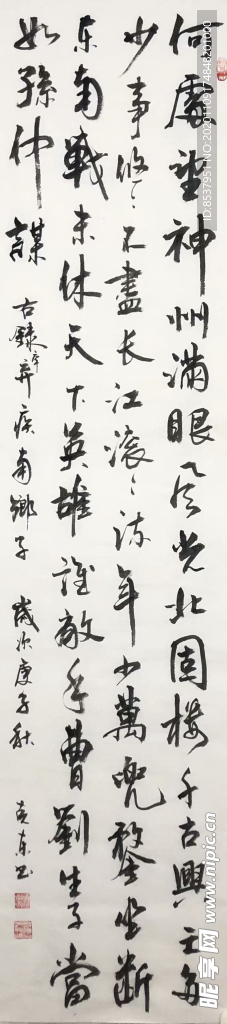 何處望神州滿眼風光北固樓千古興亡多
少事悠〻不盡長江滾〻流年少萬兜鍪坐斷
東南戰未休天下英雄誰敵手曹劉生子當
如孫仲謀
古錄辛弃疾南鄉子 歲次庚子秋 克東书
昵享网 www.nipic.cn